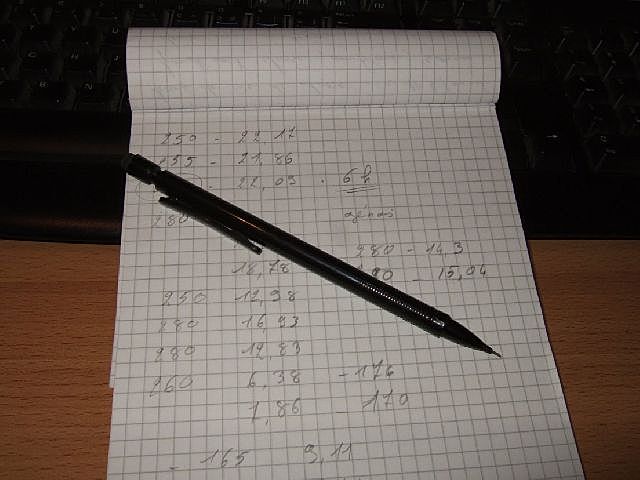 250 - 22,17
255 - 21,86
- 22,09 . 5 h
280
280 - 14,3
18,78
90 - 15,04
250 12,98
280 16,93
280 12,83
260 6,38 - 176
1,86 170
- 165 9,11